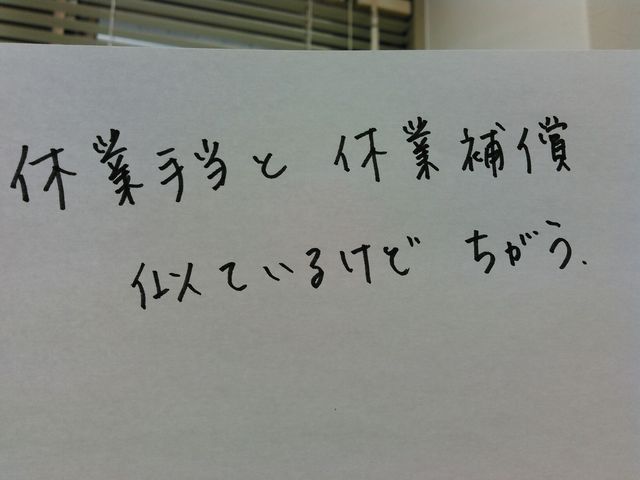 休業手当と 休業補償
似ているけど ちがう.